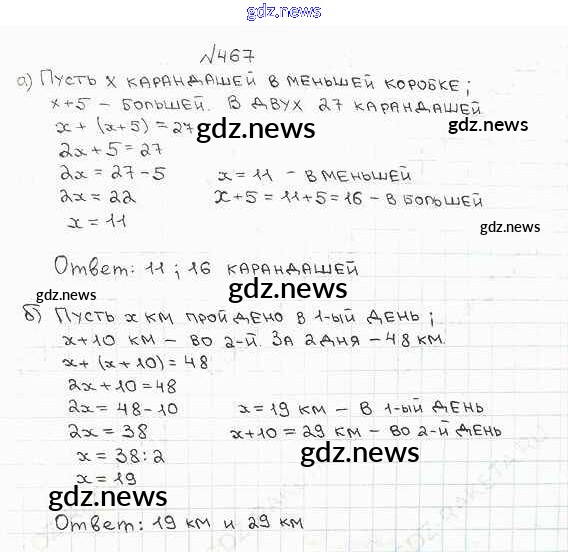 gdz.news
№467
а) Пусть х карандашей в меньшей коробке;
х+5 – большей. В двух 27 карандашей
х + (х+5) = 27
gdz.news
gdz.news
2х + 5 = 27
2х = 27 - 5
х = 11 – в меньшей
2х = 22
х+5 = 11+5 = 16 – в большей
х = 11
gdz.news
Ответ: 11 ; 16 карандашей
gdz.news
gdz.news
б) Пусть х км пройдено в 1-ый день;
х+10 км – во 2-й. За 2 дня – 48 км.
х + (х + 10) = 48
2х + 10 = 48
2х = 48 - 10
х = 19 км – в 1-ый день
2х = 38
х+10 = 29 км – во 2-й день
х = 38 : 2
gdz.news
х = 19
gdz.news
Ответ: 19 км и 29 км